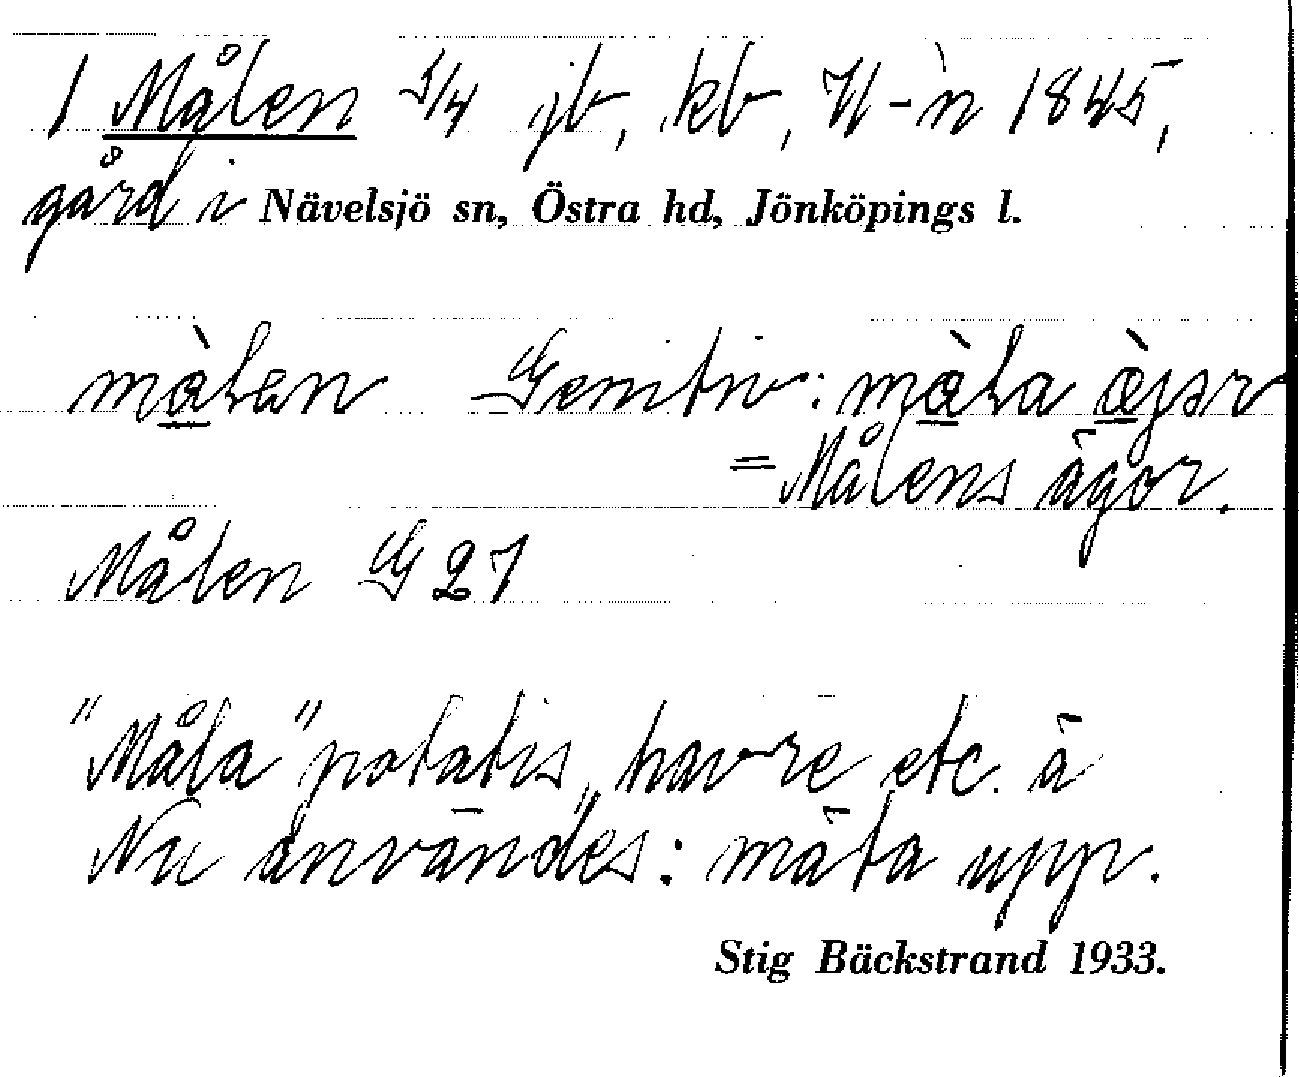 1 Målen 3/4 jb, kb, H-n 1845,
gård i Nävelsjö sn, Östra hd, Jönköpings l.
màlen Genitiv: màla ægor
= Målens ägor.
Målen G 27
"Måla" potatis, havre etc. ä
Nu användes: mäta upp.
Stig Bäckstrand 1933.